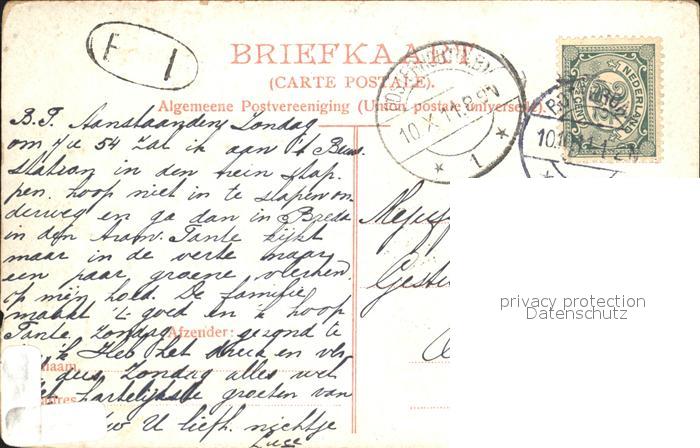 F I
BRIEFKAART
(CARTE POSTALE).
Algemeene Postvereeniging (Union postale universelle).
10 X 11. 8-9N
1
NEDERLAND
2½
B.T. Aanstaanden Zondag
om 7u 54 zal ik aan 't Beurs
station in den trein stap
pen. hoop niet in te slapen on
derweg en ga dan in Breda
in den tram. Tante kijkt
maar in de verte naar
een paar groene vlerken
op mijn hoed. De familie
maakt 't goed en 'k hoop
Tante Zondag gezond te
Afzender:
'k Heb het druk en
dus Zondag alles wel
hartelijkste groeten van
U liefh. nichtje
privacy protection
Datenschutz